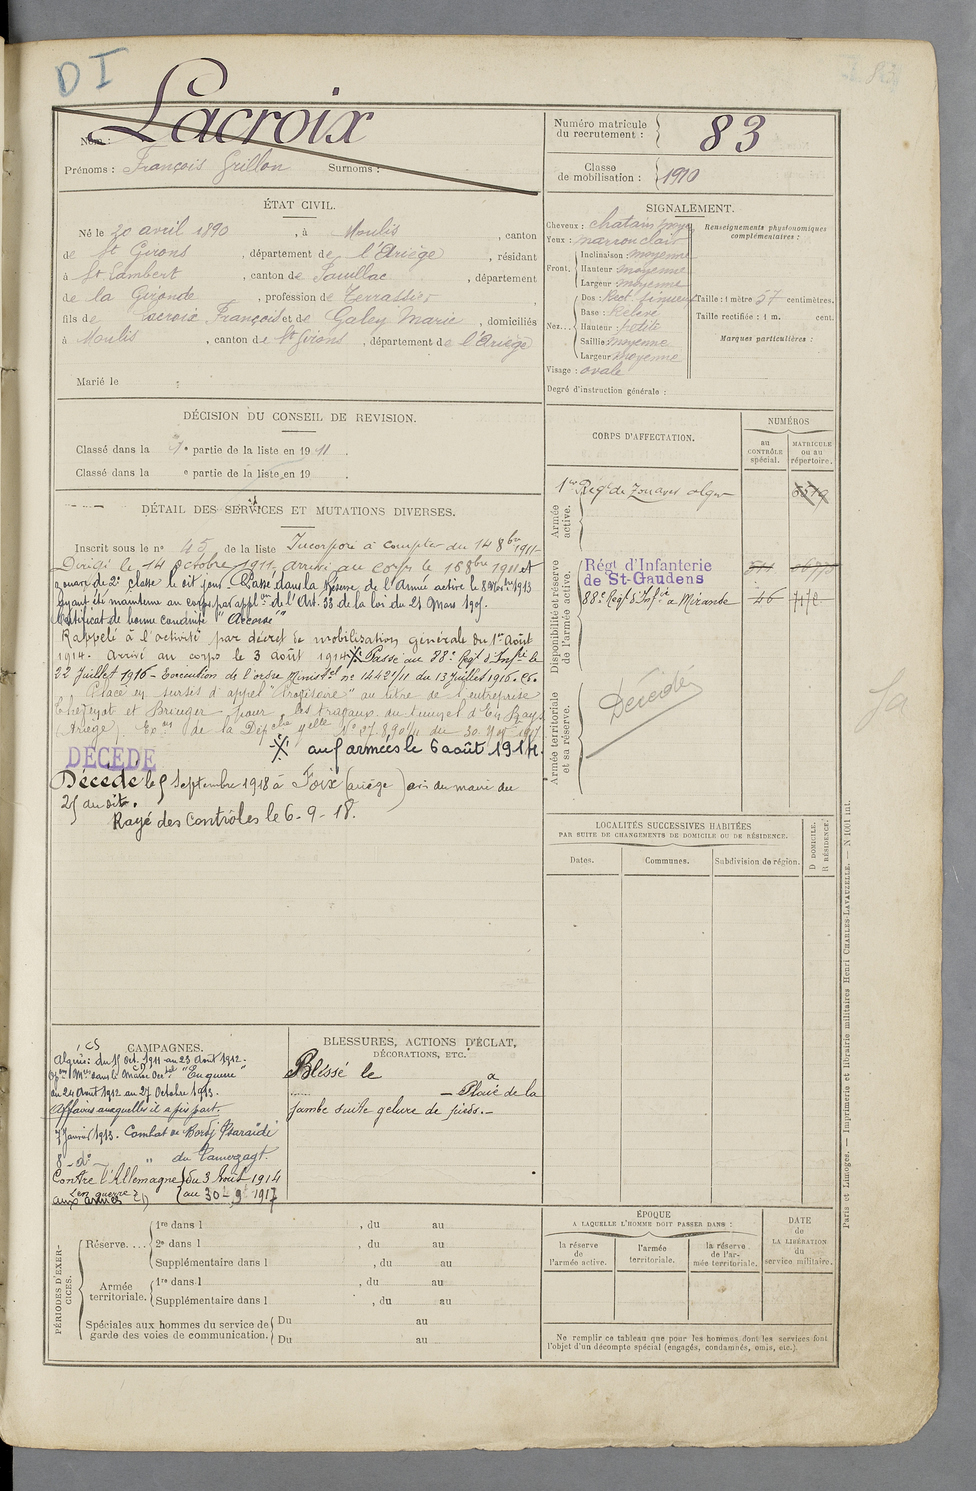 D I
Lacroix
Nom :
Prénoms : François Grillon Surnoms :
Numéro matricule
du recrutement : 83
Classe
de mobilisation : 1910
ÉTAT CIVIL.
Né le 20 avril 1890, à Moulis, canton
de St Girons, département de l'Ariège, résidant
à St Lambert, canton de Pauillac, département
de la Gironde, profession de Terrassier
fils de Lacroix François et de Galey Marie, domiciliés
à Moulis, canton de St Girons, département de l'Ariège
Marié le
SIGNALEMENT.
Cheveux : chatain moyen
Yeux : marron clair
Front. Inclinaison : moyenne
Hauteur : moyenne
Largeur : moyenne
Nez... Dos : Rect. sinueux
Base : Relevé
Hauteur : petite
Saillie : moyenne
Largeur : moyenne
Visage : ovale
Degré d'instruction générale :
Renseignements physionomiques
complémentaires :
Taille : 1 mètre 57 centimètres.
Taille rectifiée : 1 m. cent.
Marques particulières :
DÉCISION DU CONSEIL DE REVISION.
Classé dans la 1e partie de la liste en 1911.
Classé dans la e partie de la liste en 19 .
DÉTAIL DES SERVICES ET MUTATIONS DIVERSES.
Inscrit sous le no 45 de la liste Incorporé à compter du 14 8bre 1911
Dirigé le 14 octobre 1911, arrivé au corps le 16 8bre 1911 et
zouave de 2e classe le dit jour. Passé dans la Réserve de l'Armée active le 8 Novbre 1913
Ayant été maintenu au corps par applon de l'Art. 33 de la loi du 21 Mars 1905.
Certificat de bonne conduite "Accordé"
Rappelé à l'activité par décret de mobilisation générale du 1er Août
1914. Arrivé au corps le 3 août 1914 X Passé au 88e Regt d'Infrie le
22 Juillet 1916 - Exécution de l'ordre Ministel no 14421/11 du 13 Juillet 1916.
Placé en sursis d'appel "Provisoire" au titre de l'entreprise
et Brieuger pour les travaux du tunnel d'En Rays
(Ariège). de la Dép du 30 1917
X aux armées le 6 août 1914.
DÉCÉDÉ
Décédé le 5 Septembre 1918 à Foix (ariège) avis du maire du
25 du dit.
Rayé des contrôles le 6-9-18.
CORPS D'AFFECTATION.
NUMÉROS
au
CONTRÔLE
spécial.
MATRICULE
ou au
répertoire.
Armée
active.
1er Regt de Zouaves alger
Disponibilité et réserve
de l'armée active.
Régt d'Infanterie
de St-Gaudens
88e Regt d'Infie à Mirande 46
Armée territoriale
et sa réserve.
Décédé
LOCALITÉS SUCCESSIVES HABITÉES
PAR SUITE DE CHANGEMENTS DE DOMICILE OU DE RÉSIDENCE.
D DOMICILE.
R RÉSIDENCE.
Dates. Communes. Subdivision de région.
CAMPAGNES.
Algérie : du 15 Oct. 1911 au 23 Août 1912.
dans le Maroc Octal "En guerre"
du 24 Août 1912 au 27 Octobre 1913.
Affaires auxquelles il a pris part.
7 Janvier 1913. Combat de Bordj
8 - do - " du Tamerzagt.
Contre l'Allemagne du 3 Août 1914
(en guerre) au 30 - 9 1917
aux armées
BLESSURES, ACTIONS D'ÉCLAT,
DÉCORATIONS, ETC.
Blessé le à
- Plaie de la
jambe suite gelure de pieds. -
PÉRIODES D'EXERCICES.
Réserve.... 1re dans l , du au
2e dans l , du au
Supplémentaire dans l , du au
Armée
territoriale. 1re dans l , du au
Supplémentaire dans l , du au
Spéciales aux hommes du service de
garde des voies de communication. Du au
Du au
ÉPOQUE
A LAQUELLE L'HOMME DOIT PASSER DANS :
la réserve
de
l'armée active.
l'armée
territoriale.
la réserve
de l'ar-
mée territoriale.
DATE
de
LA LIBÉRATION
du
service militaire.
Ne remplir ce tableau que pour les hommes dont les services font
l'objet d'un décompte spécial (engagés, condamnés, omis, etc.).
Paris et Limoges. — Imprimerie et librairie militaires Henri CHARLES-LAVAUZELLE. — N 1001 int.